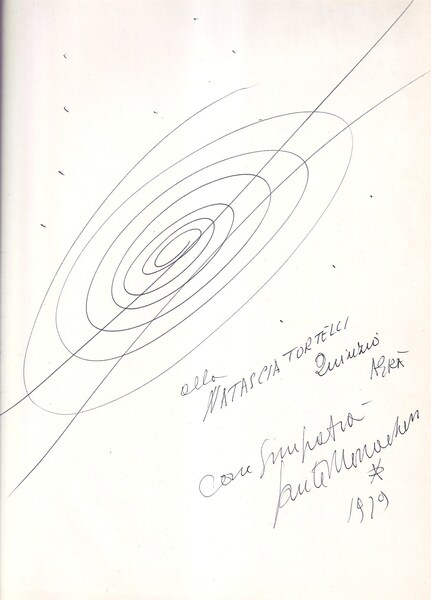 alla
NATASCIA TORTELLI
con Simpatia
Sante Monachesi
1979